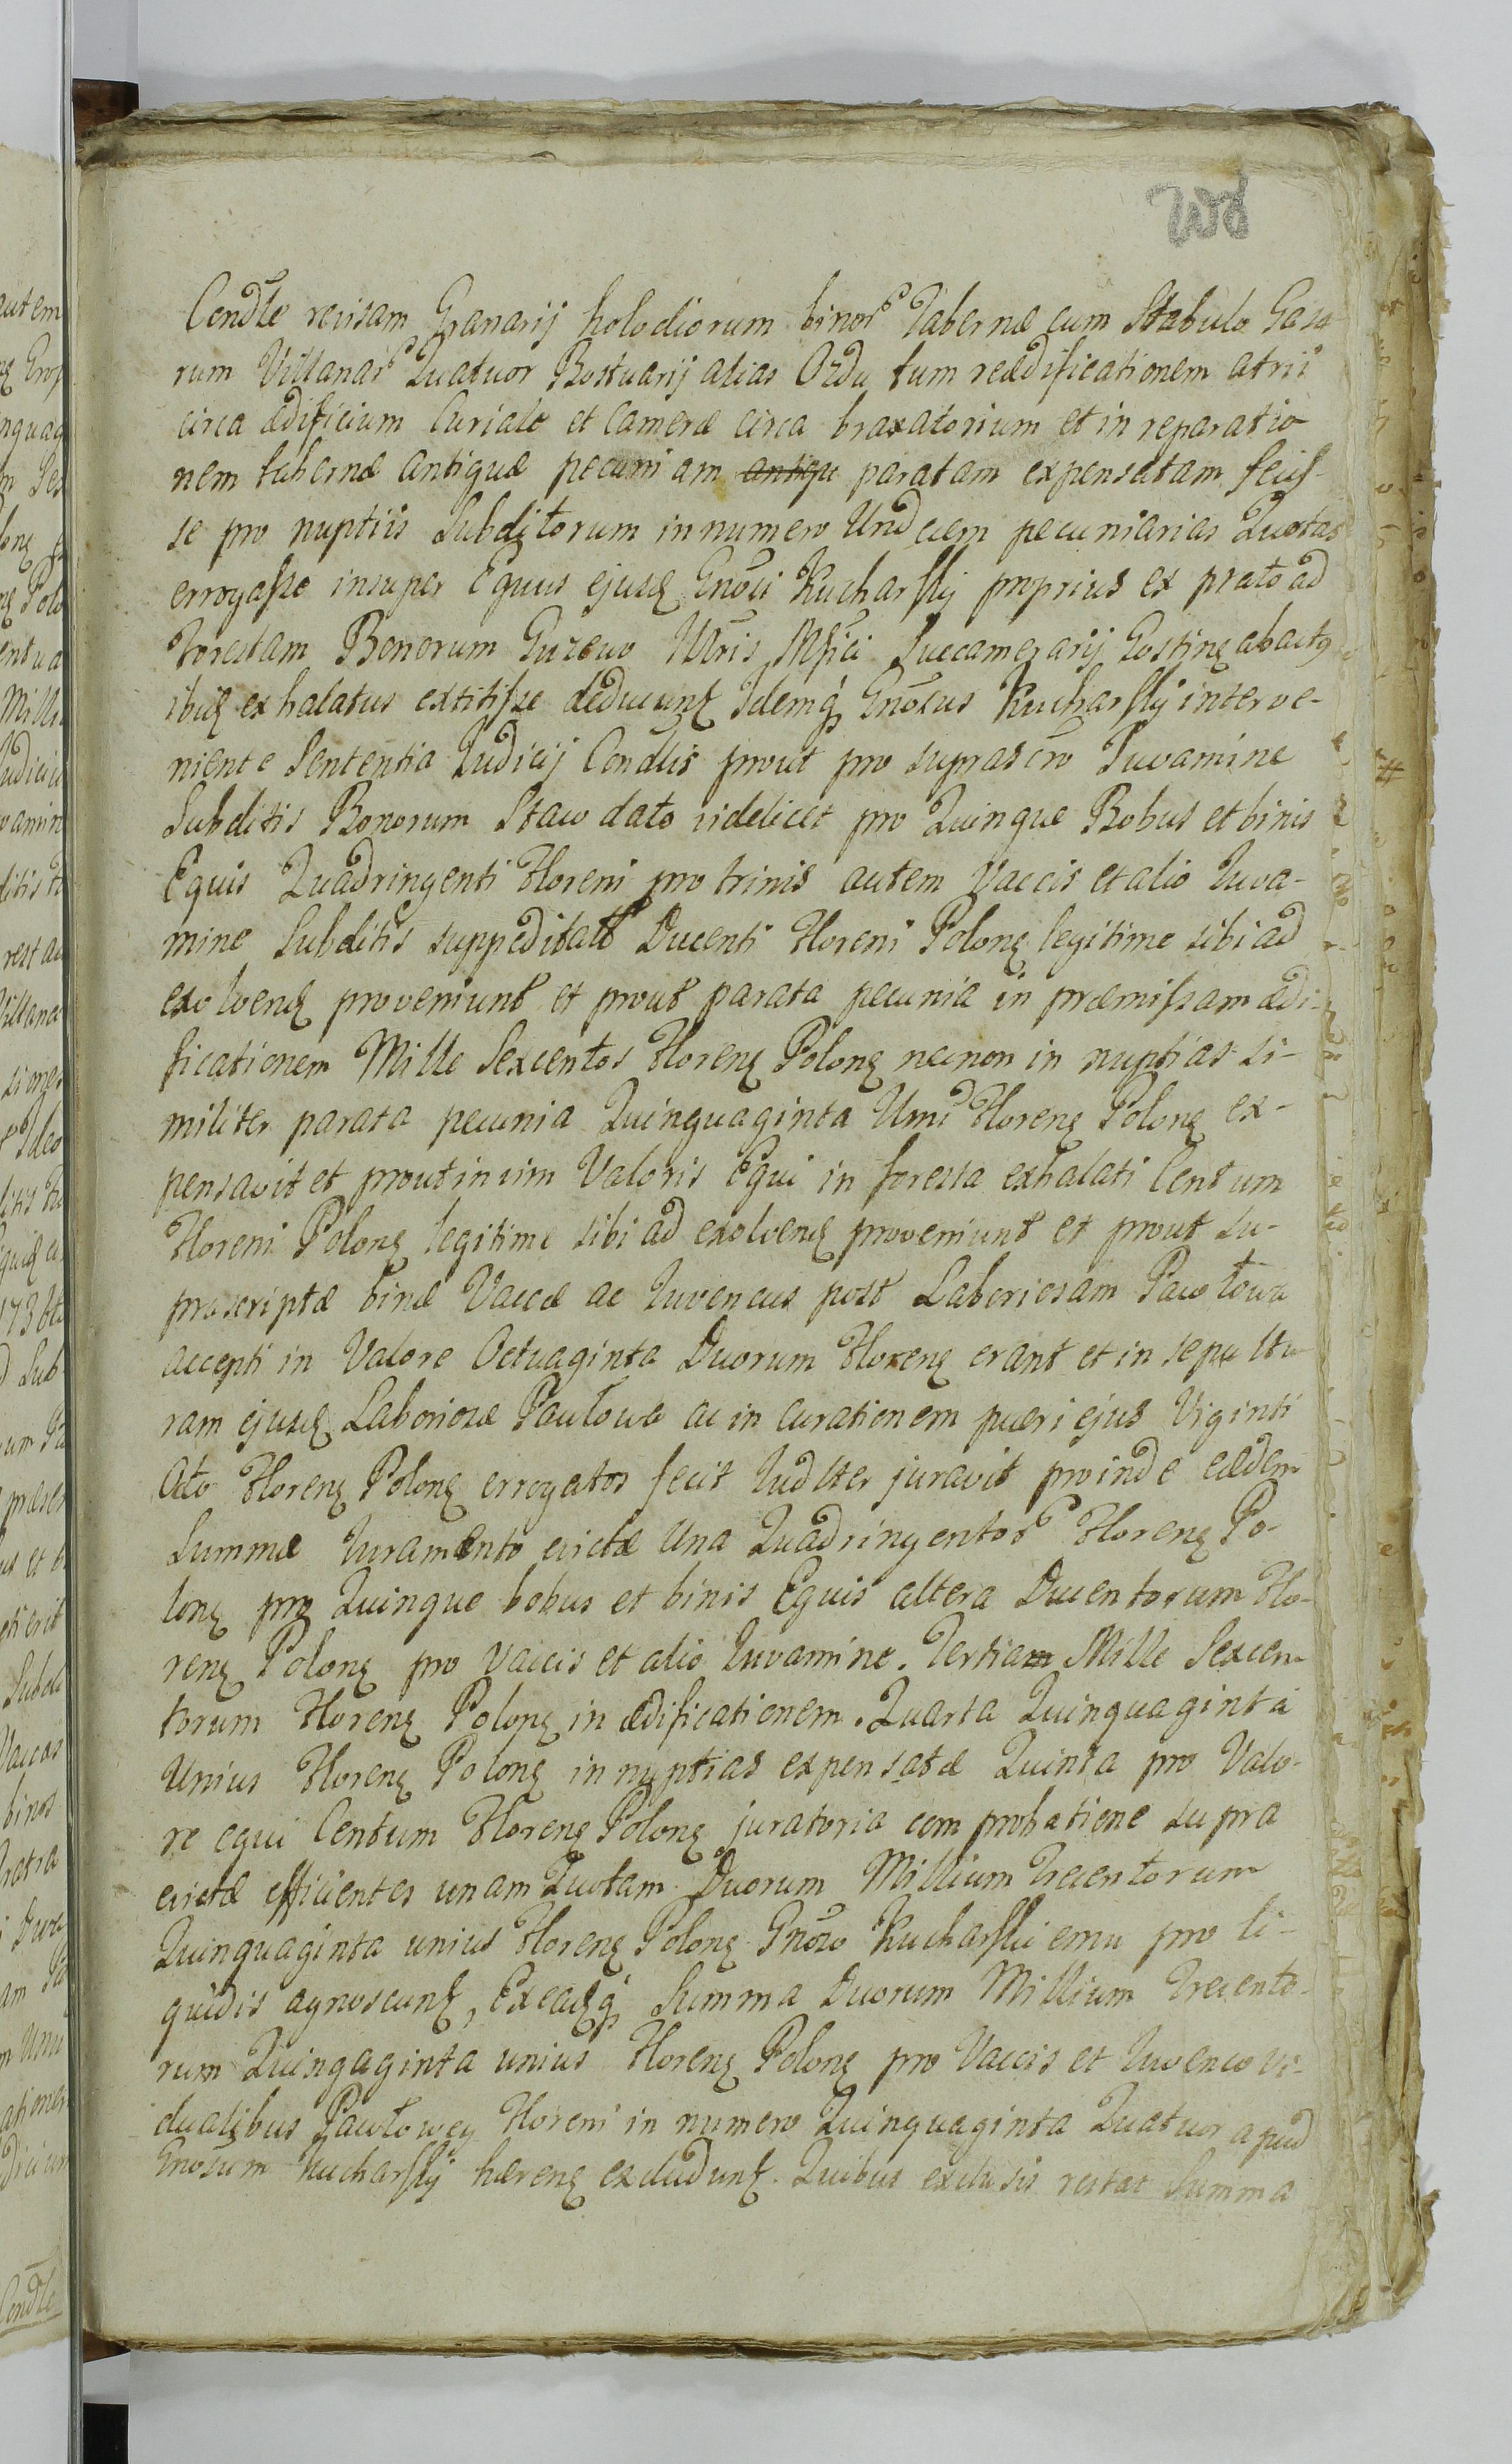 Condle reiisam Granarij holodiorum binor Tabernæ cum Stabulo Casa
rum Villanar Quatuor Bostuarij alias Ozdu tum reædificationem atrii
circa ædificium Curiale et Cameræ circa braxatorium et in reparatio
nem tabernæ antiquæ pecuniam antiqu paratam expensatam feciſ-
se pro nuptiis Subditorum in numero Undecem pecuniarias Quotas
erroyaſse insuper Equus ejusę Gnosi Kucharſkij proprius ex prato ad
Forestam Bonorum Guzewo Mfici Succamerarij Gostinę abactꝯ
ibię exhalatus extitiſse deducunt Idemq Gnosus Kucharſkij interve-
niente Sententia Iudicij Condlis prout pro suprascro Iuvamine
Subditis Bonorum Staw dato videlicet pro Quinque Bobus et binis
Equis Quadringenti Floreni pro trinis autem Vaccis et alio Iuva-
mine Subditis suppeditatt Ducenti Floreni Polonę legitime sibi ad
exolvenę proveniunt et prout parata pecunia in præmiſsam ædi-
ficationem Mille Sexcentos Florenę Polonę necnon in nuptias si-
militer parata pecunia Quinquaginta Unu Florenę Polonę ex-
pensavit et prout in vim Valoris Equi in foresta exhalati Centum
Floreni Polonę legitime sibi ad exolvenę proveniunt et prout su-
prascriptæ binæ Vaccæ ac Iuvencus post Laboriosam Pawłowa
accepti in Valore Octuaginta Duorum Florenę erant et in sepultu
ram ejusę Laboriosæ Pawłowa ac in curationem pueri ejus Viginti
Octo Florenę Polonę erroyatos fecit Iudlter juravit proinde eædem
Summæ Iuramento evictæ Una Quadringentor Florenę Po-
lonę pro Quinque bobus et binis Equis altera Ducentorum Flo-
renę Polonę pro Vaccis et alio Iuvamine. Tertiam Mille Sexcen-
torum Florenę Polonę in ædificationem. Quarta Quinquaginta
Unius Florenę Polonę in nuptias expensatæ Quinta pro Valo-
re equi Centum Florenę Polonę juratoria comprobatione supra
evictæ efficientes unam Quotam Duorum Millium Trecentorum
Quinquaginta unius Florenę Polonę Gnoso Kucharſkiemu pro li-
quidis agnoscunt, Exeadęq Summa Duorum Millium Trecento-
rum Quingaginta unius Florenę Polonę pro Vaccis et Iuvenco vi-
dualibus Pawłowey Floreni in numero Quinquaginta Quatuor apud
Gnosum Kucharſkij hærenę excludunt. Quibus exclusis restat Summa